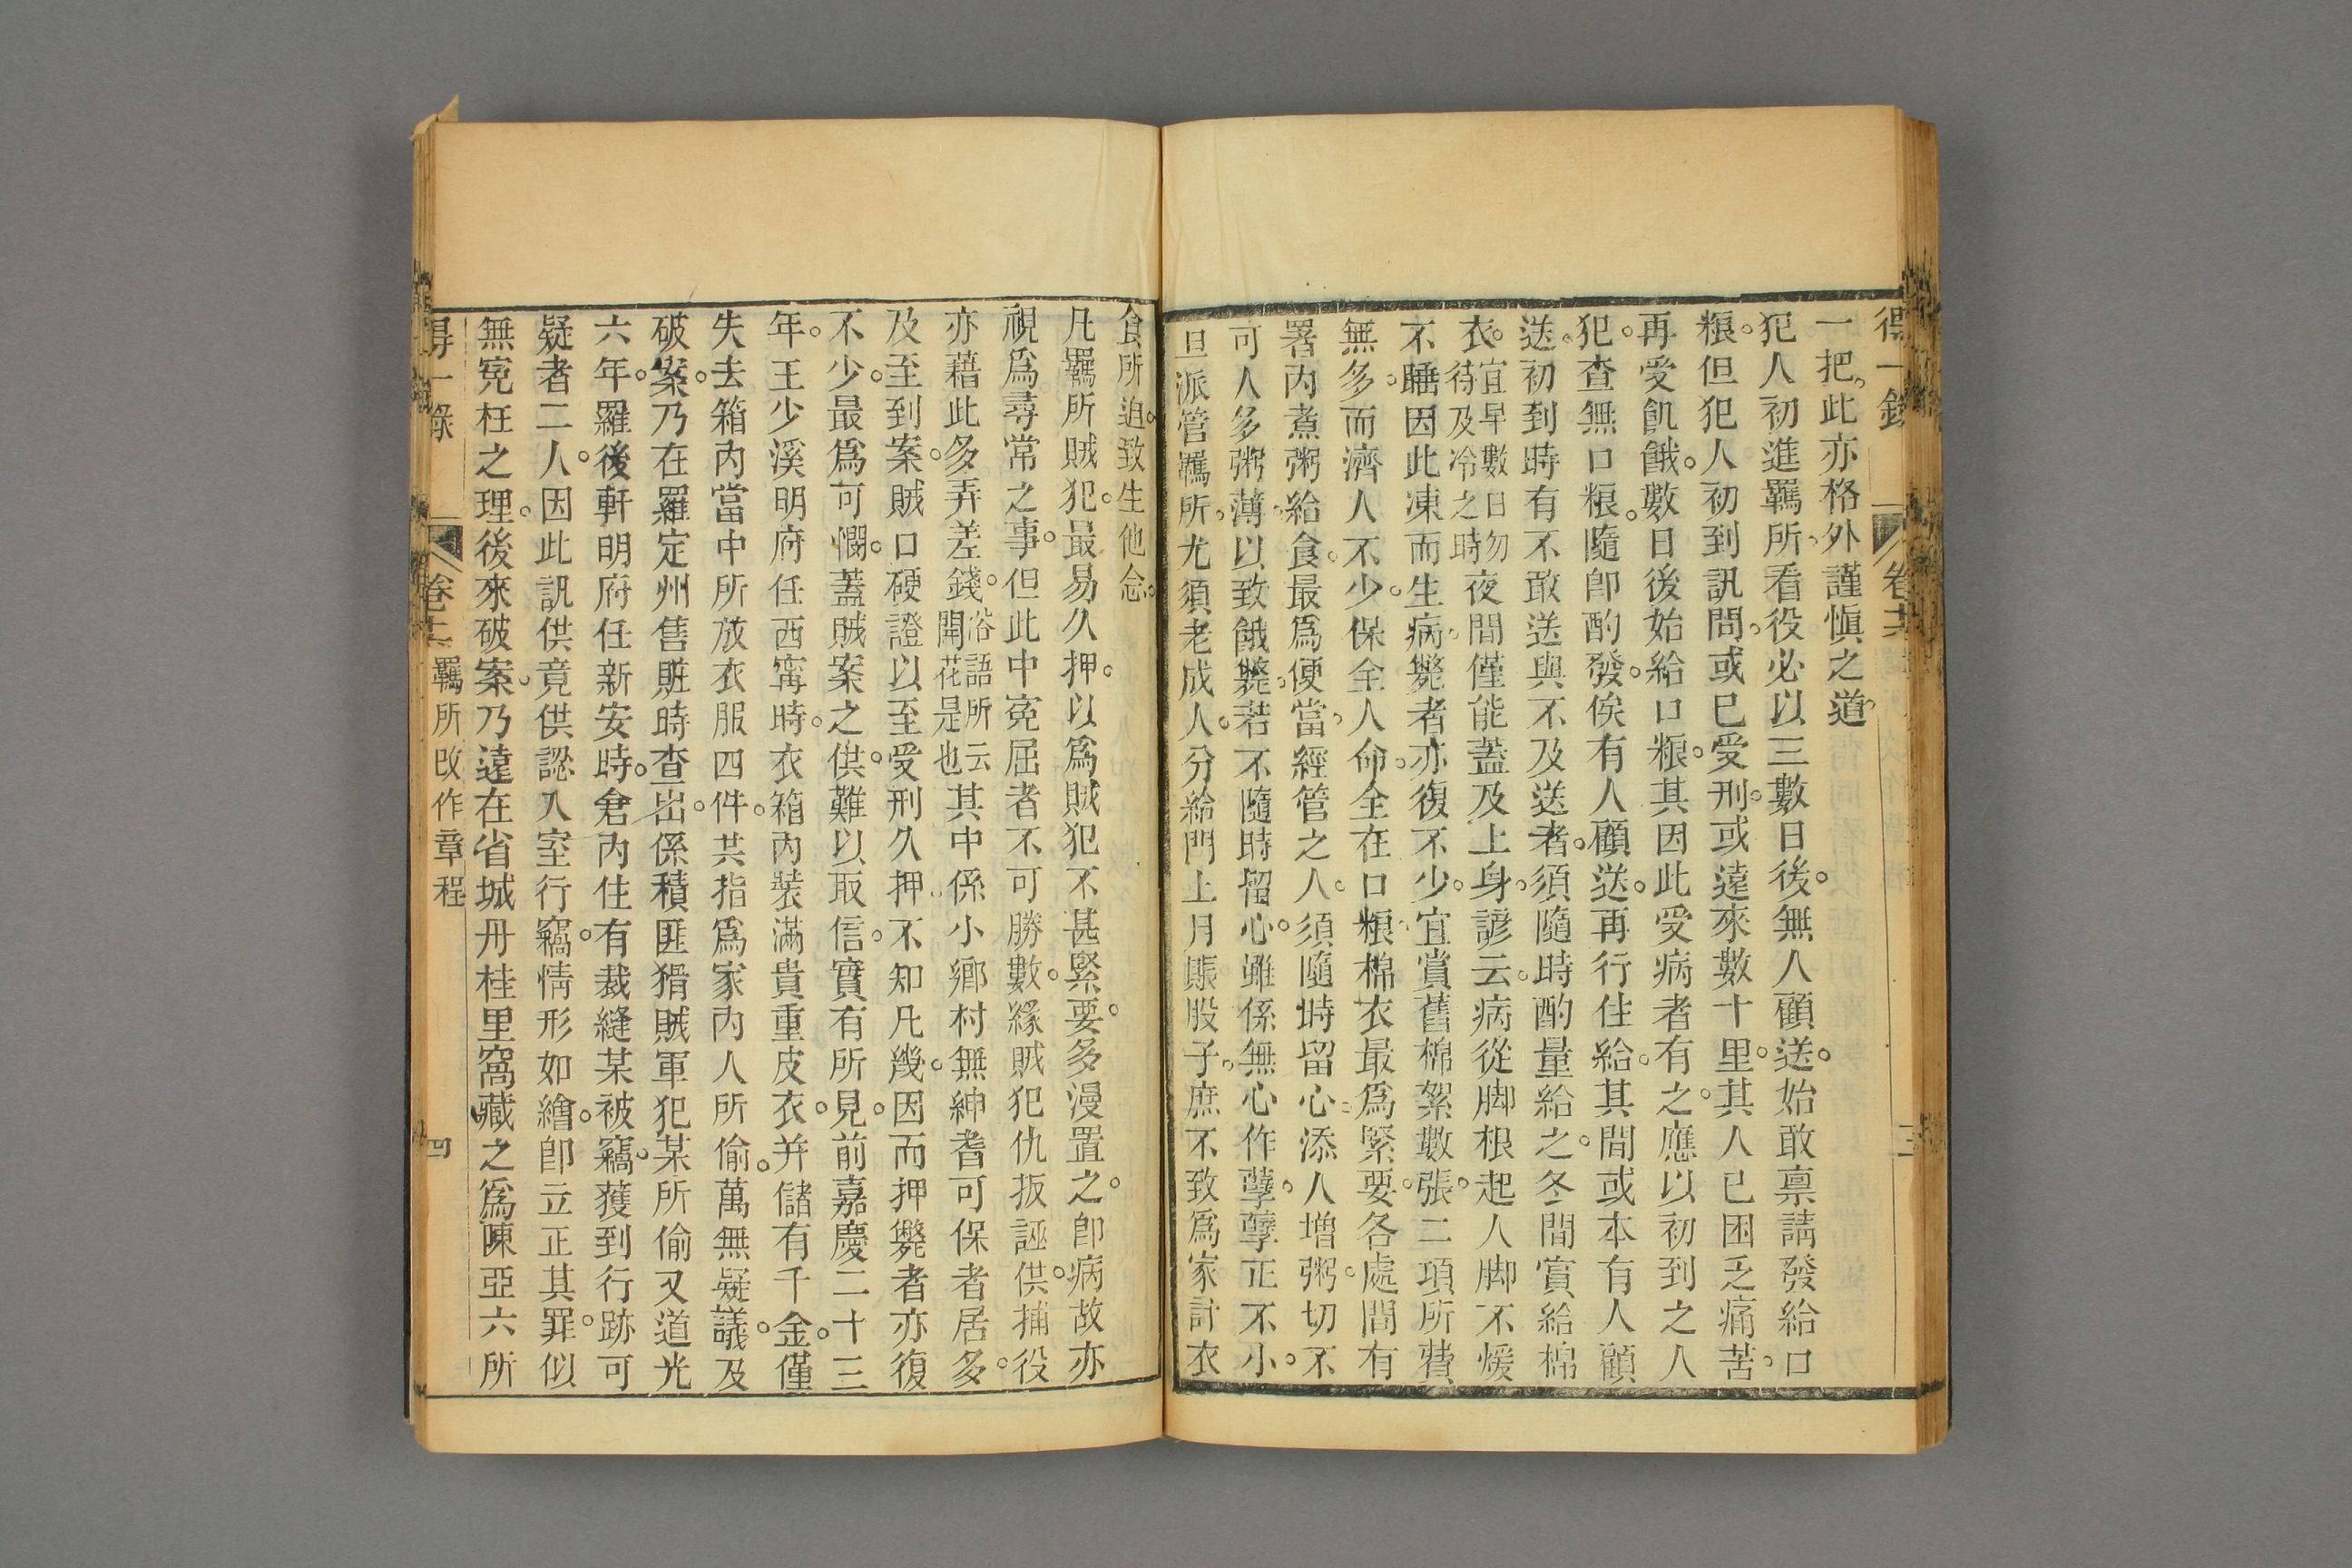 得一錄 卷十六 三
一把。此亦格外謹愼之道。
犯人初進羈所。看役必以三數日後。無人顧送。始敢禀請發給口
粮。但犯人初到訊問。或已受刑。或遠來數十里。其人已困乏痛苦。
再受飢餓。數日後始給口粮。其因此受病者有之。應以初到之人
犯。查無口粮。隨卽酌發。俟有人顧送。再行住給。其間或本有人顧
送。初到時有不敢送與不及送者。須隨時酌量給之。冬間賞給棉
衣。宜早數日勿待及冷之時夜間僅能蓋及上身。諺云。病從脚根起人脚不煖
不睡因此凍而生病。斃者亦復不少。宜賞舊棉絮數張。二項所費
無多。而濟人不少。保全人命。全在口粮。棉衣最爲緊要。各處間有
署內煮粥給食。最爲便當。經管之人。須隨時留心。添人增粥。切不
可人多粥薄。以致餓斃。若不隨時留心。雖係無心作孽。孽正不小。
且派管羈所。尤須老成人。分給門上月賬股子。庶不致爲家計衣
食所迫。致生他念。
凡羈所賊犯。最易久押。以爲賊犯不甚緊要。多漫置之。卽病故亦
視爲尋常之事。但此中寃屈者不可勝數。緣賊犯仇扳誣供。捕役
亦藉此多弄差錢。俗語所云開花是也其中係小鄉村無紳耆可保者居多。
及至到案。賊口硬證以至受刑久押。不知凡幾。因而押斃者亦復
不少。最爲可憫。蓋賊案之供。難以取信。實有所見。前嘉慶二十三
年。王少溪明府任西甯時。衣箱內裝滿貴重皮衣。并儲有千金。僅
失去箱內當中所放衣服四件。共指爲家內人所偷。萬無疑議。及
破案。乃在羅定州售賍時查出。係積匪猾賊軍犯某所偷又道光
六年。羅後軒明府任新安時。倉內住有裁縫某被竊。獲到行跡可
疑者二人。因此訊供竟供認入室行竊。情形如繪。卽立正其罪。似
無寃枉之理。後來破案。乃遠在省城丹桂里窩藏之爲陳亞六所
得一錄 卷十六 羈所改作章程 四